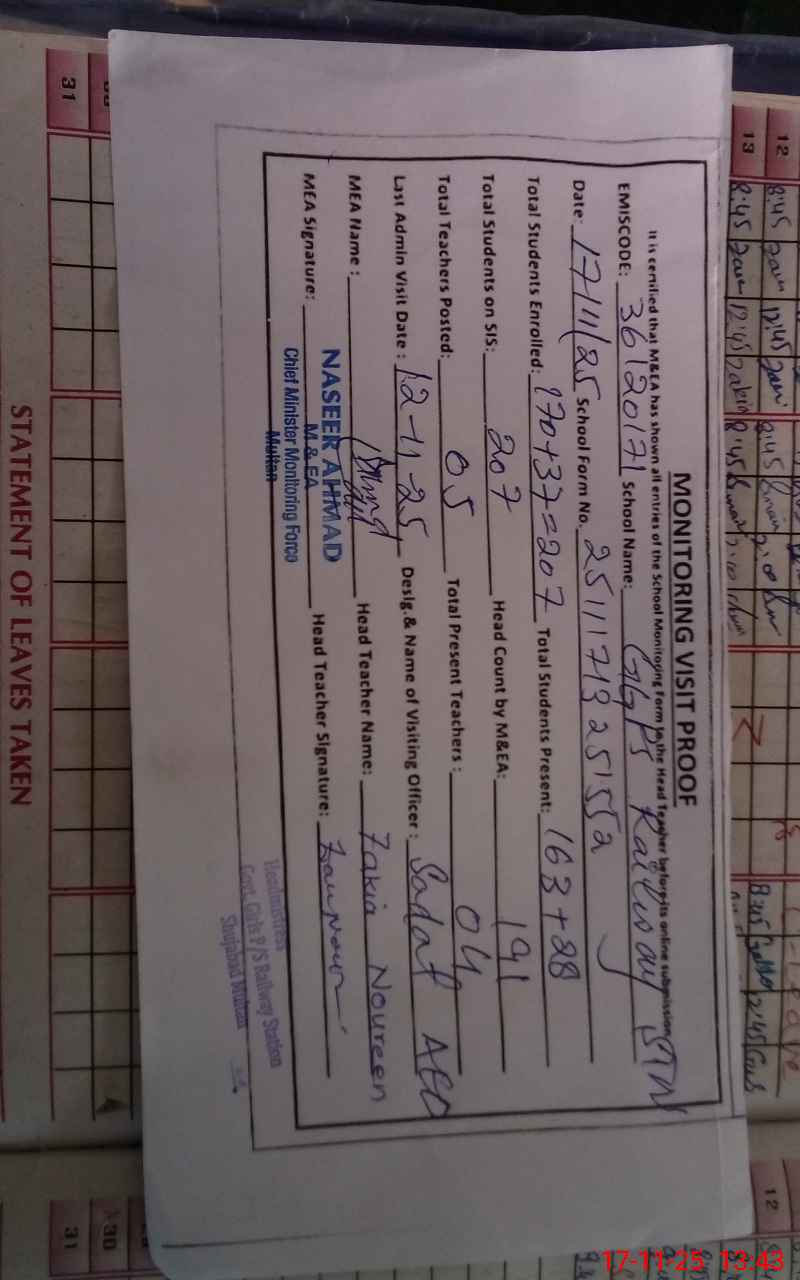 MONITORING VISIT PROOF
It is certified that M&EA has shown all entries of the School Monitoring Form to the Head Teacher before its online submission
EMISCODE: 36120171 School Name: GGPS Railway STN
Date: 17/11/25 School Form No. 2511171325155a
Total Students Enrolled: 170+37=207 Total Students Present: 163+28
Total Students on SIS: 207 Head Count by M&EA: 191
Total Teachers Posted: 05 Total Present Teachers: 04
Last Admin Visit Date: 12-11-25 Desig.& Name of Visiting Officer: Sadaf AEO
MEA Name: Head Teacher Name: Zakia Noureen
MEA Signature: Head Teacher Signature:
NASEER AHMAD
M & EA
Chief Minister Monitoring Force
Multan
Headmistress
Govt. Girls P/S Railway Station
Shujabad Multan
STATEMENT OF LEAVES TAKEN
31
12
13
8:45 12:45 8:45 2:00
8:45 12:45 8:45 2:00
12
30
31
17-11-25 13:43